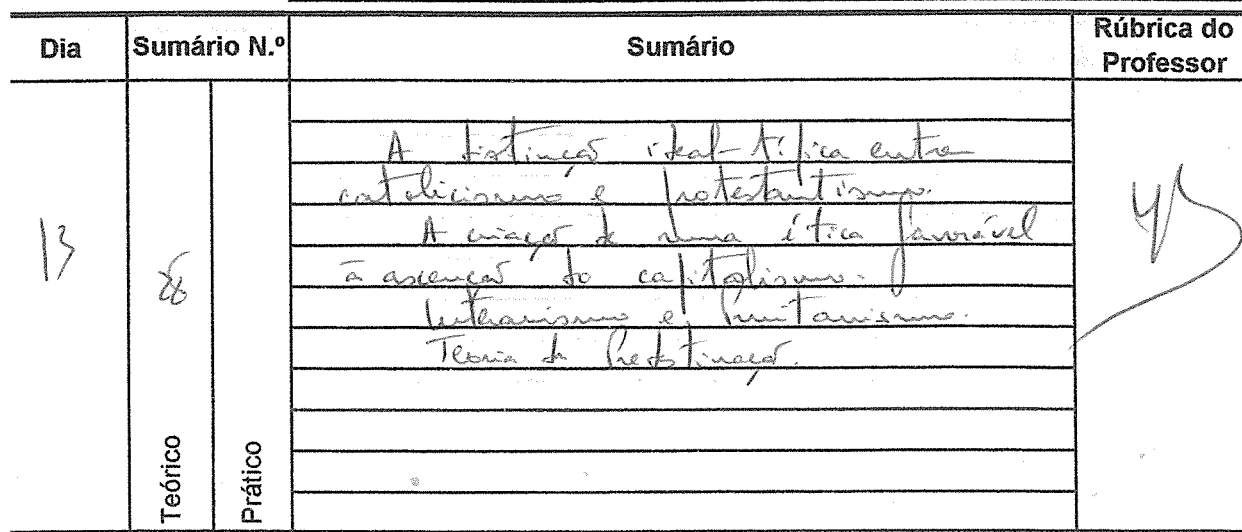 Dia Sumário N.º Sumário Rúbrica do Professor
13
A distinção ideal-típica entre
catolicismo e protestantismo.
A criação de uma ética favorável
à ascenção do capitalismo.
Luteranismo e Puritanismo.
Teoria da Predestinação.
Teórico
Prático